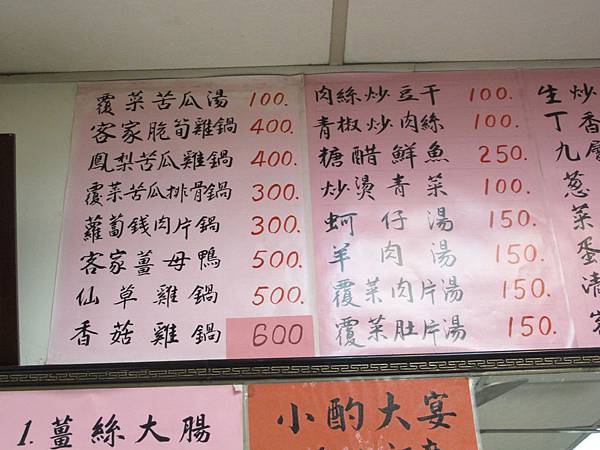 覆菜苦瓜湯 100.
客家脆筍雞鍋 400.
鳳梨苦瓜雞鍋 400.
覆菜苦瓜排骨鍋 300.
蘿蔔錢肉片鍋 300.
客家薑母鴨 500.
仙草雞鍋 500.
香菇雞鍋 600
肉絲炒豆干 100.
青椒炒肉絲 100.
糖醋鮮魚 250.
炒燙青菜 100.
蚵仔湯 150.
羊肉湯 150.
覆菜肉片湯 150.
覆菜肚片湯 150.
生炒
丁香
九層
蔥
菜
蛋
清
1.薑絲大腸
小酌大宴